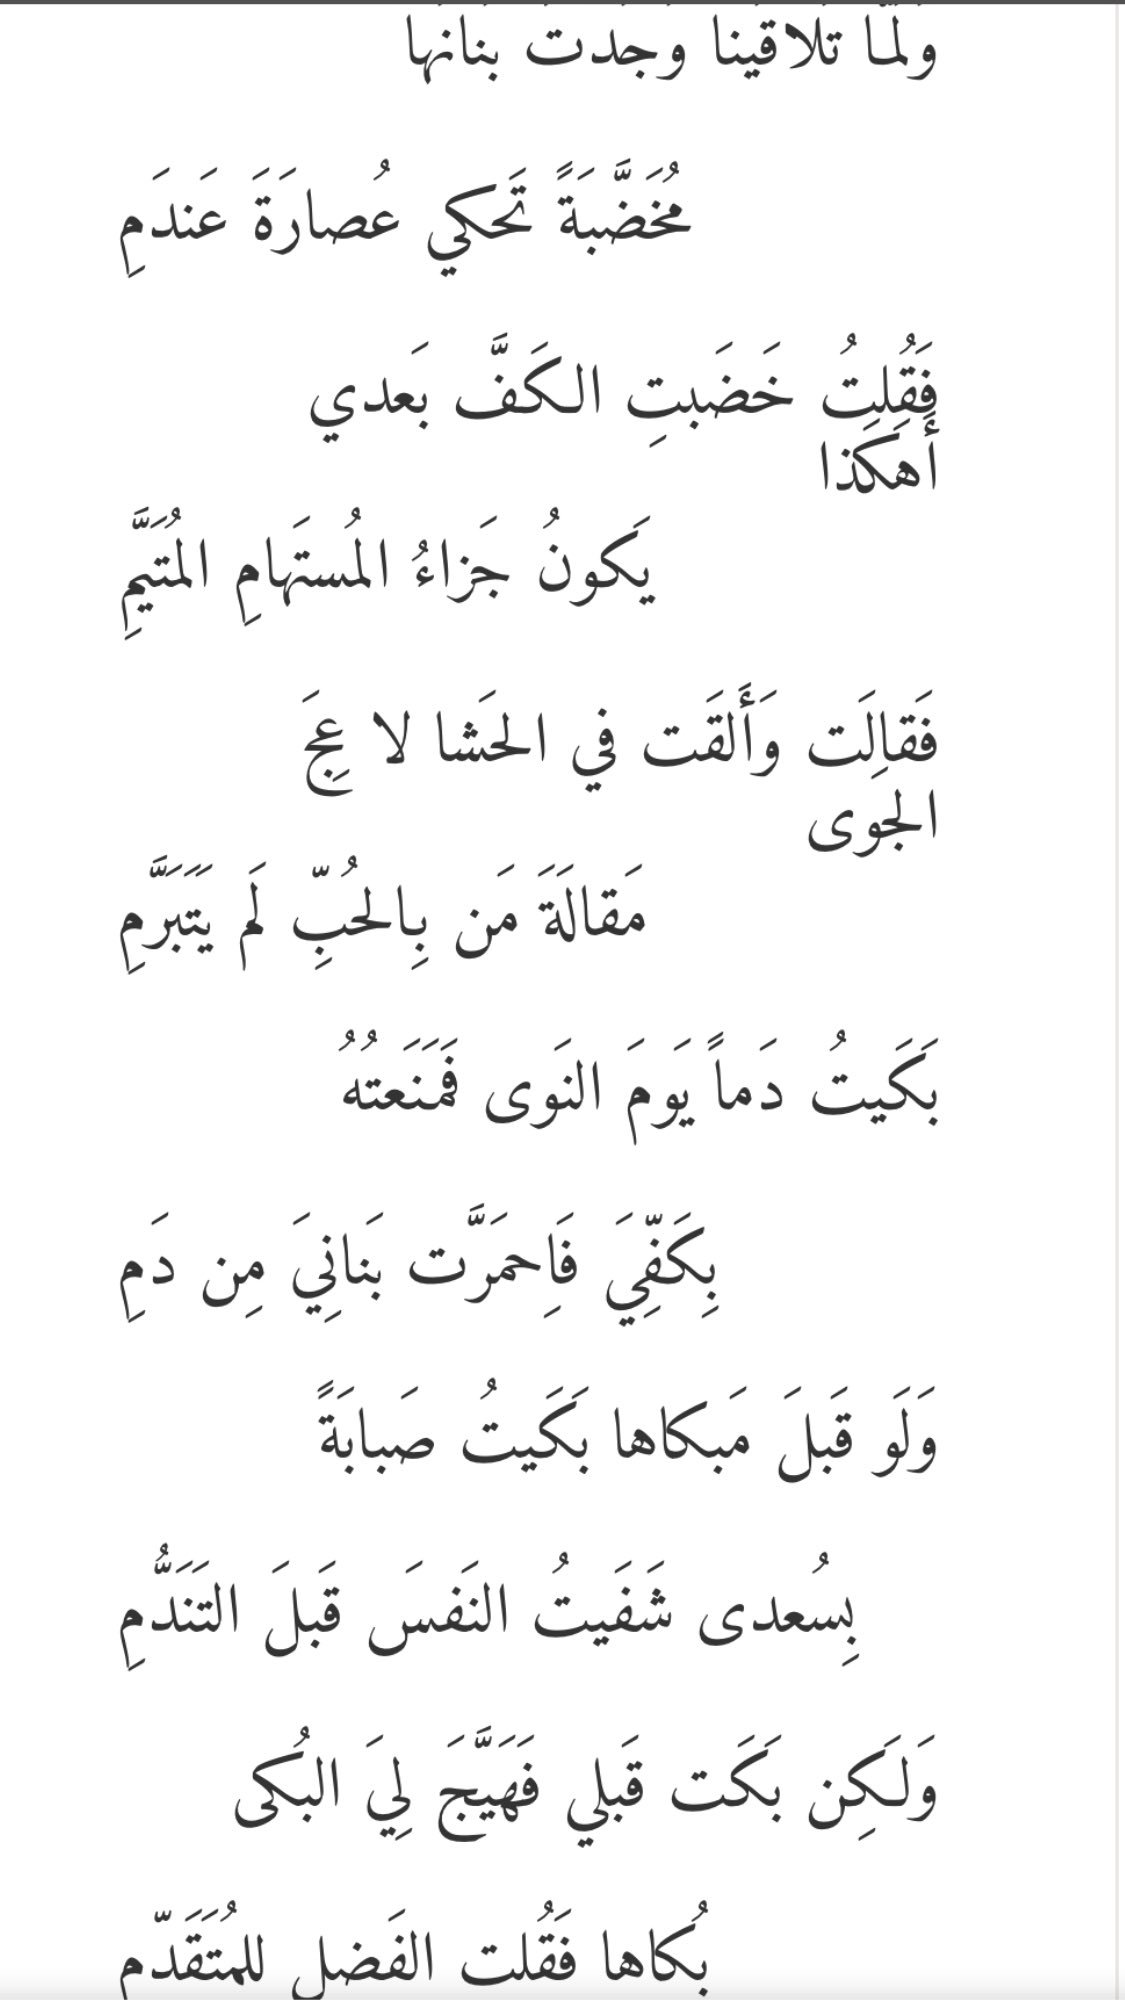 وَلَمّا تَلاقَينا وَجَدتُ بَنانَها
مُخَضَّبَةً تَحكي عُصارَةَ عَندَمِ
فَقُلتُ خَضَبتِ الكَفَّ بَعدي
أَهَكَذا
يَكونُ جَزاءُ المُستَهامِ المُتَيَّمِ
فَقالَت وَأَلقَت في الحَشا لا عِجَ
الجَوى
مَقالَةَ مَن بِالحُبِّ لَم يَتَبَرَّمِ
بَكَيتُ دَماً يَومَ النَوى فَمَنَعتُهُ
بِكَفِّيَ فَاِحمَرَّت بَنانِيَ مِن دَمِ
وَلَو قَبلَ مَبكاها بَكَيتُ صَبابَةً
بِسُعدى شَفَيتُ النَفسَ قَبلَ التَنَدُّمِ
وَلَكِن بَكَت قَبلي فَهَيَّجَ لِيَ البُكى
بُكاها فَقُلت الفَضل للمُتَقَدّم